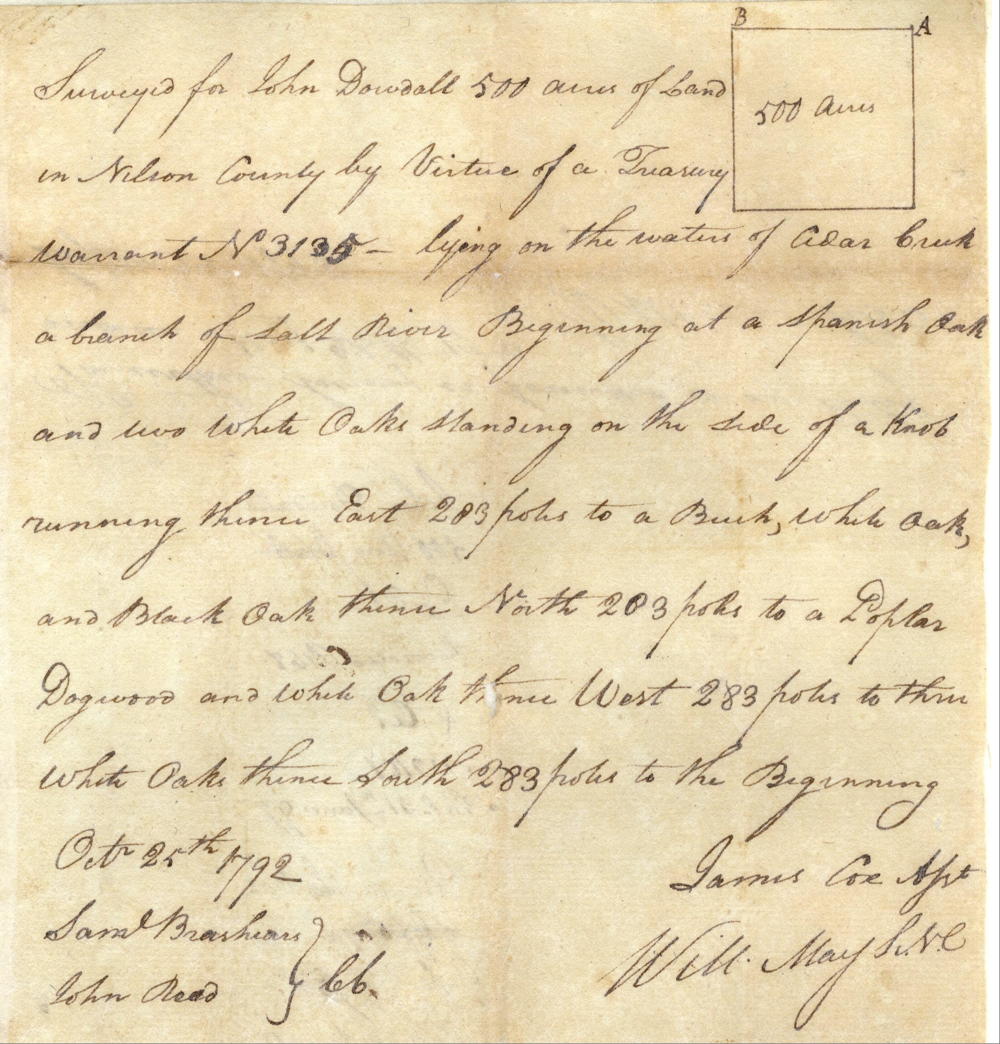 B
A
500 Acres
Surveyed for John Dowdall 500 acres of Land
in Nelson County by Virtue of a Treasury
warrant No 3135 – lying on the waters of Cedar Creek
a branch of Salt River Beginning at a Spanish Oak
and two White Oaks standing on the side of a Knob
running thence East 283 poles to a Beech, White Oak,
and Black Oak thence North 283 poles to a Poplar
Dogwood and White Oak thence West 283 poles to three
White Oaks thence South 283 poles to the Beginning
Octr 25th 1792
James Cox Asst
Saml Brashears
Will. May S.N.C
John Read } CC.